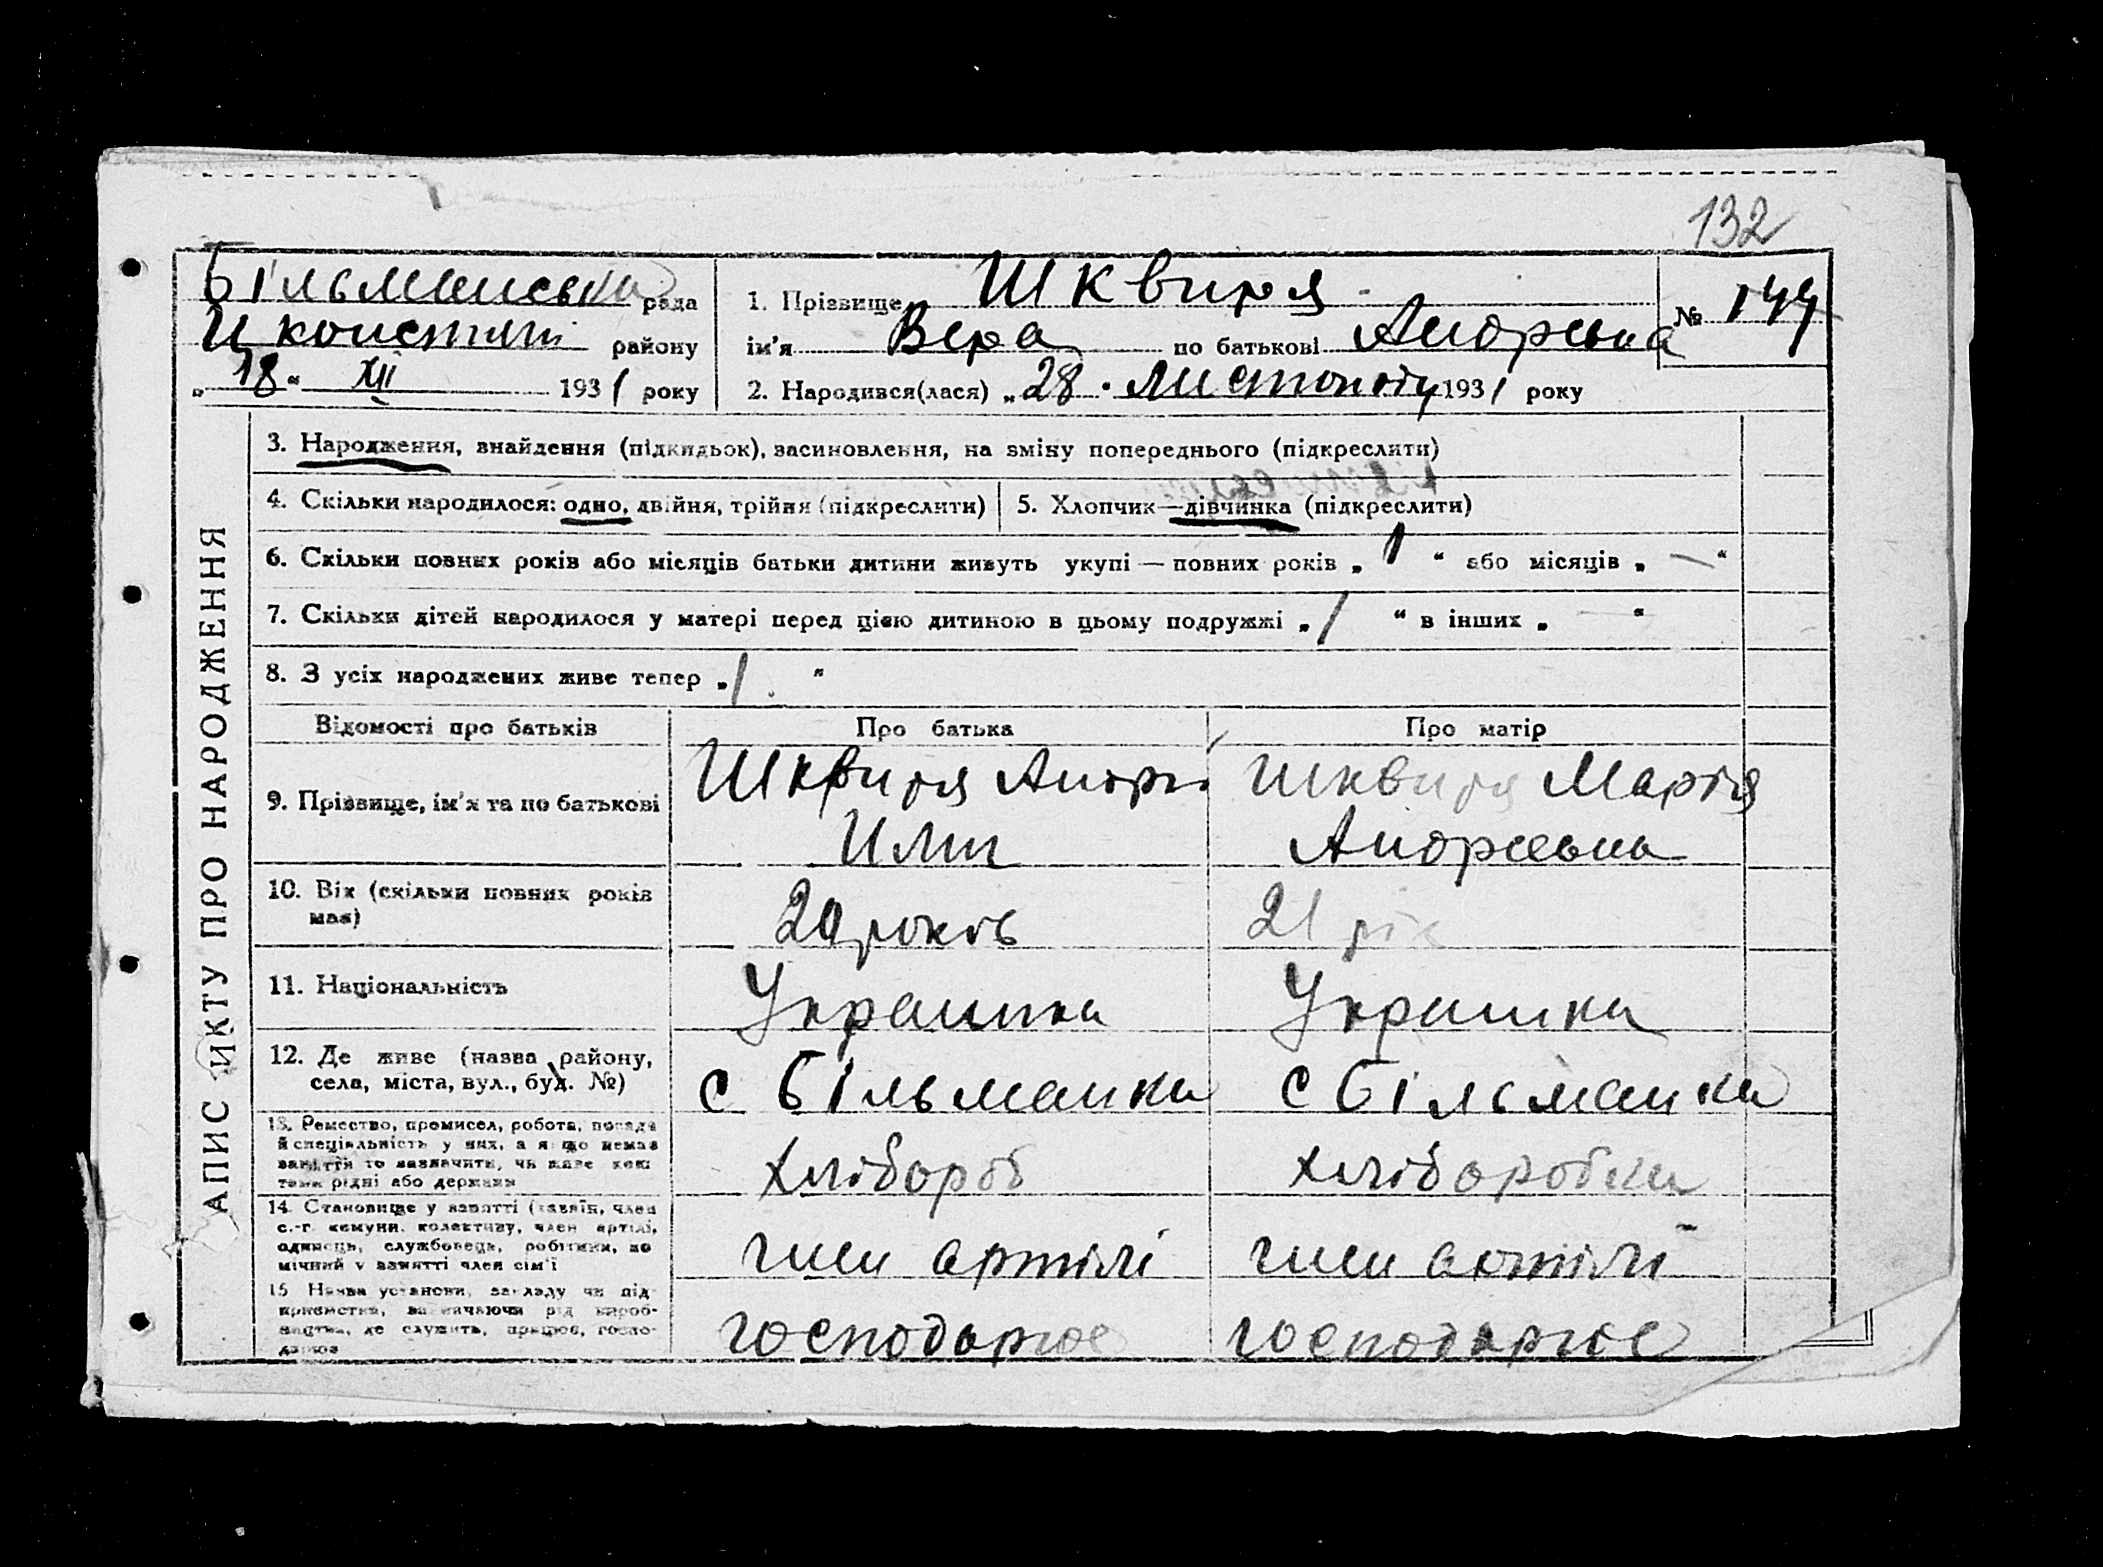 132
Більманська рада
району
„18“ XII 1931 року
1. Прізвище Шквиря
ім'я Вера по батькові Андрєевна
№ 144
2. Народився(лася) „28. листоподу 1931 року
АПИС АКТУ ПРО НАРОДЖЕННЯ
3. Народження, знайдення (підкидьок), засиновлення, на зміну попереднього (підкреслити)
4. Скільки народилося: одно, двійня, трійня (підкреслити)
5. Хлопчик—дівчинка (підкреслити)
6. Скільки повних років або місяців батьки дитини живуть укупі — повних років „1“ або місяців „—“
7. Скільки дітей народилося у матері перед цією дитиною в цьому подружжі „1“ в інших „—“
8. З усіх народжених живе тепер „1.“
Відомості про батьків Про батька Про матір
9. Прізвище, ім'я та по батькові
Шквиря Андрі
Шквиря Марія
Андрєевна
10. Вік (скільки повних років має)
20 років
21 рік
11. Національність
Украинка
Украинка
12. Де живе (назва району,
села, міста, вул., буд. №)
с Більманка
с Більманка
13. Ремество, промисел, робота, посада
й спеціяльність у них, а якщо немає
заняття то зазначити, чи живе кош
тами рідні або держави
хлібороб
хлібаробка
14. Становище у занятті (хазяїн, член
с.-г. комуни, колективу, член артілі,
одинець, службовець, робітник, по
мічний у занятті член сім'ї
член артілі
член артілі
15. Назва установи, закладу чи під
приємства, зазначаючи рід вироб-
ництва, де служить, працює, госпо-
дарює
господарює
господарює